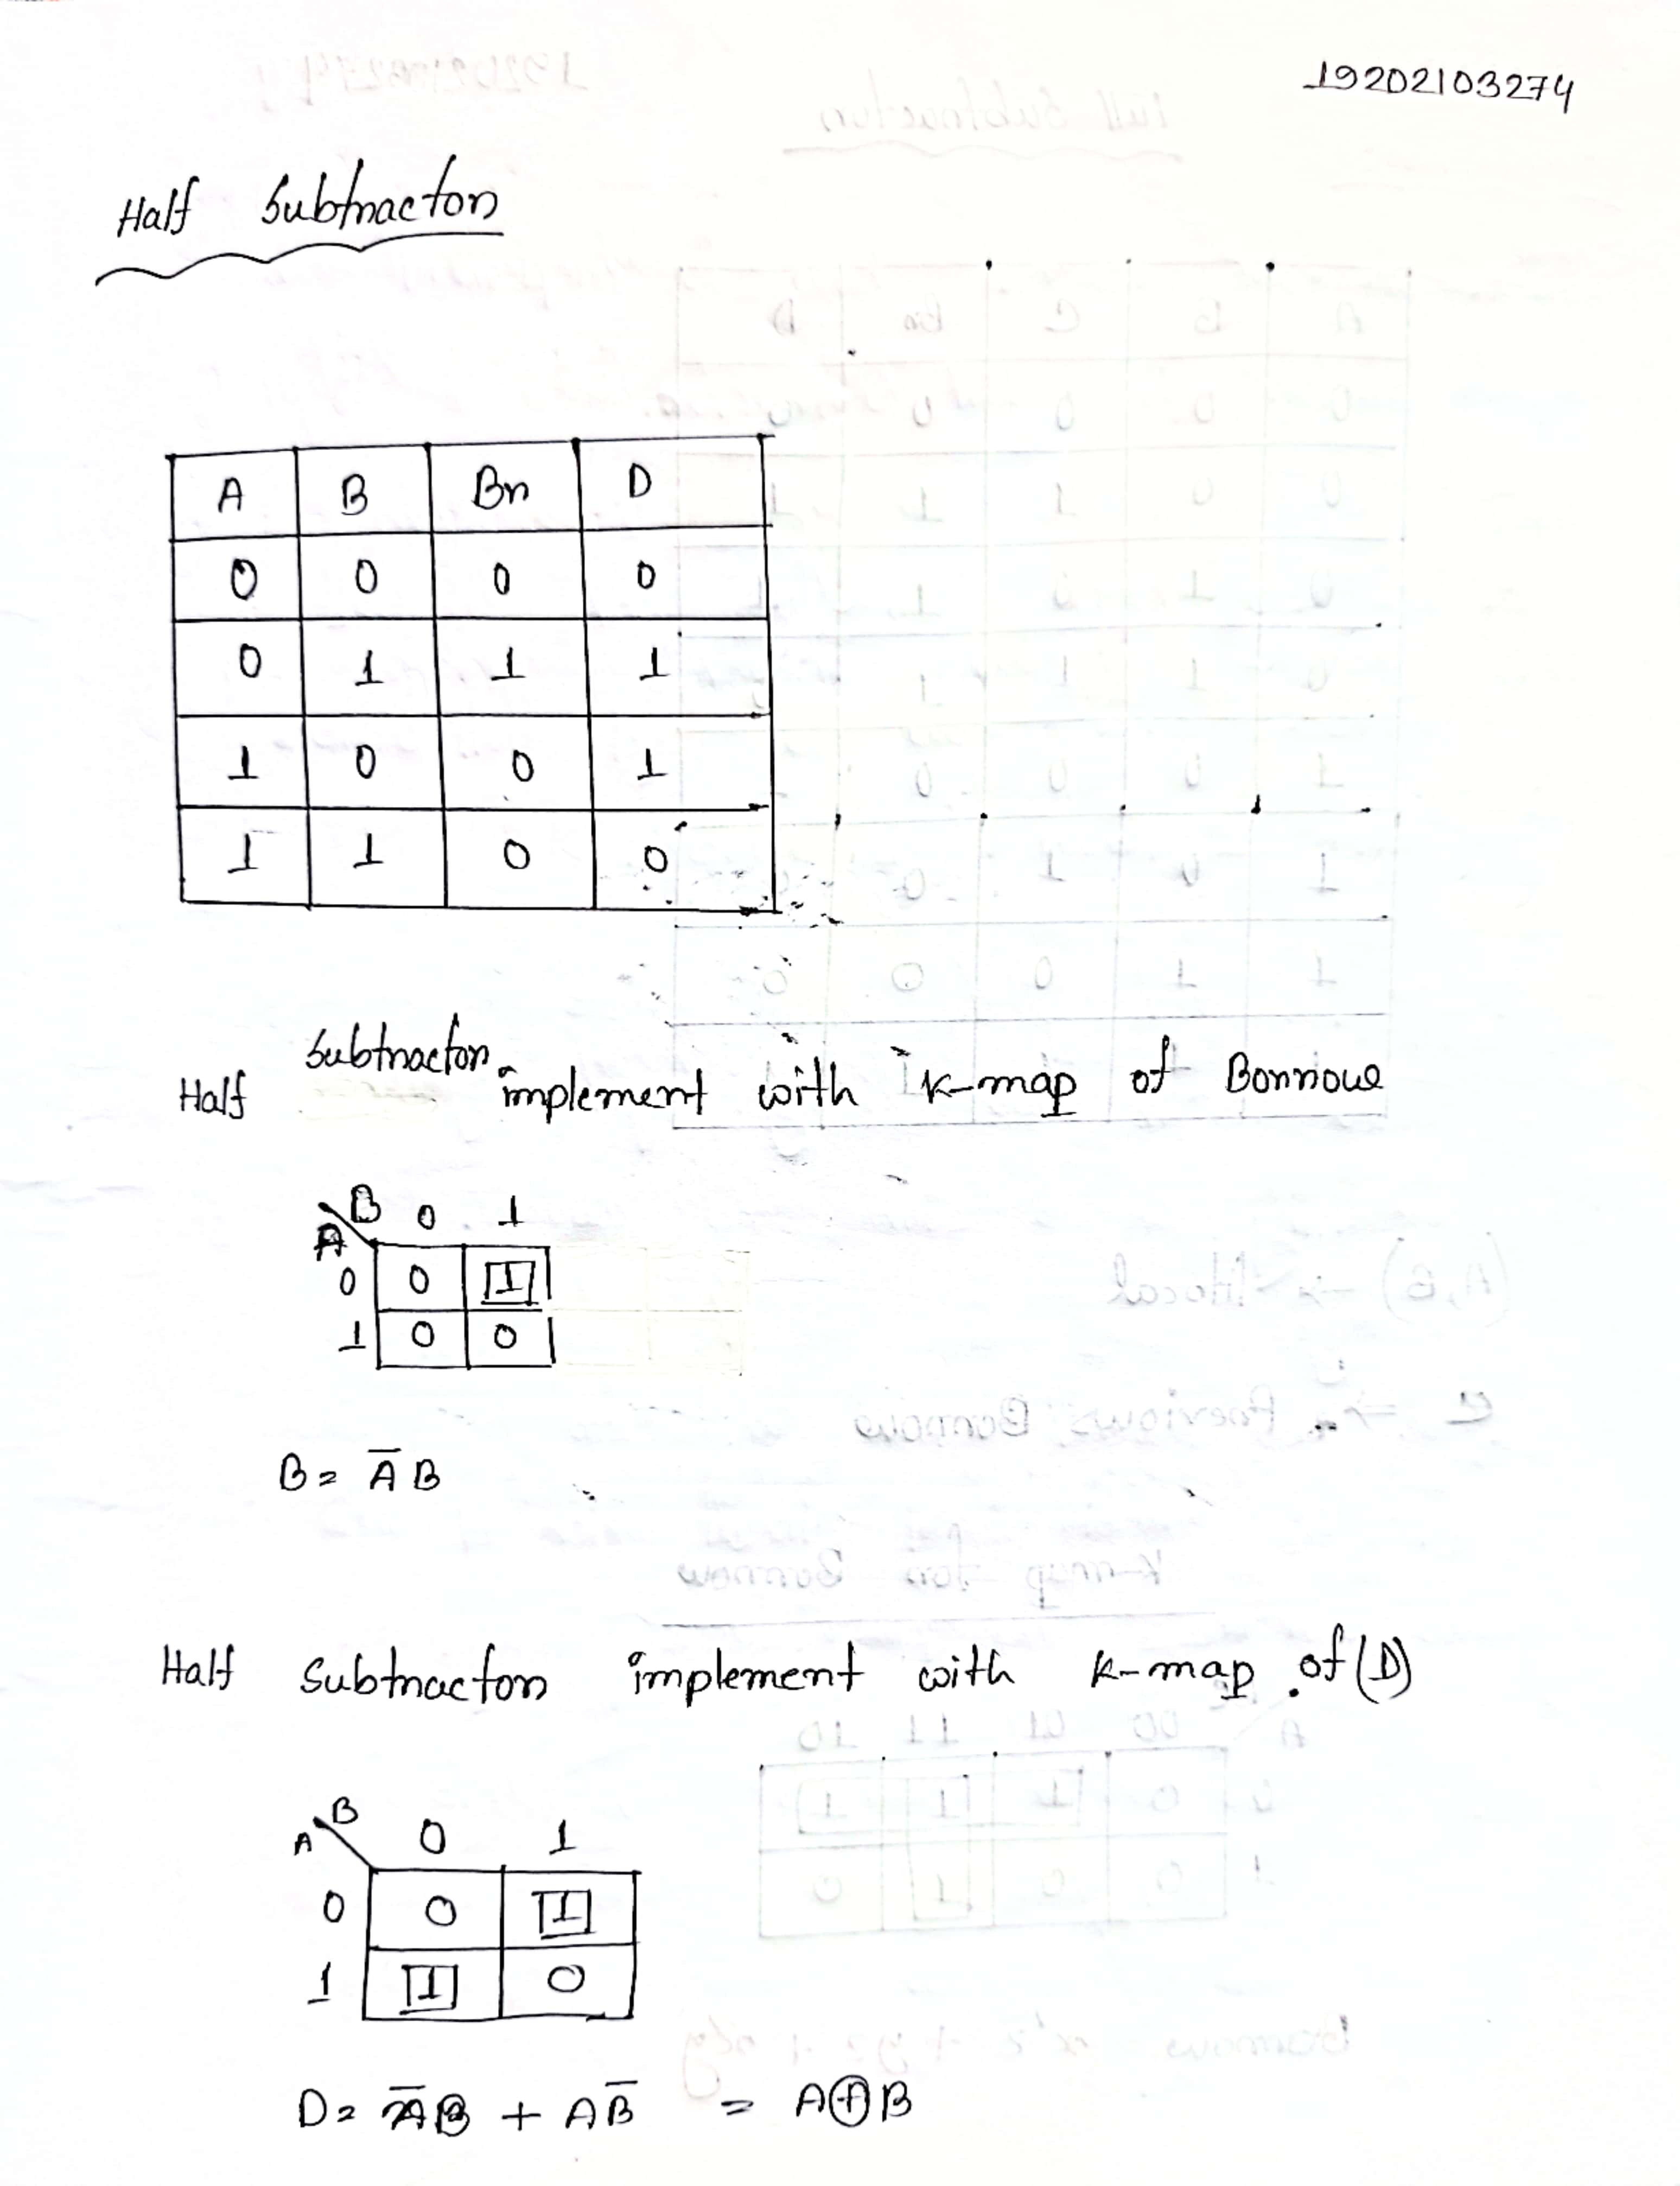 19202103274
Half Subtractor
A B Br D
0 0 0 0
0 1 1 1
1 0 0 1
1 1 0 0
Half Subtractor implement with K-map of Borrowe
B 0 1
A
0 0 1
1 0 0
B = A̅ B
Half Subtractor implement with K-map of (D)
B
A 0 1
0 0 1
1 1 0
D = A̅B + AB̅ = A⊕B